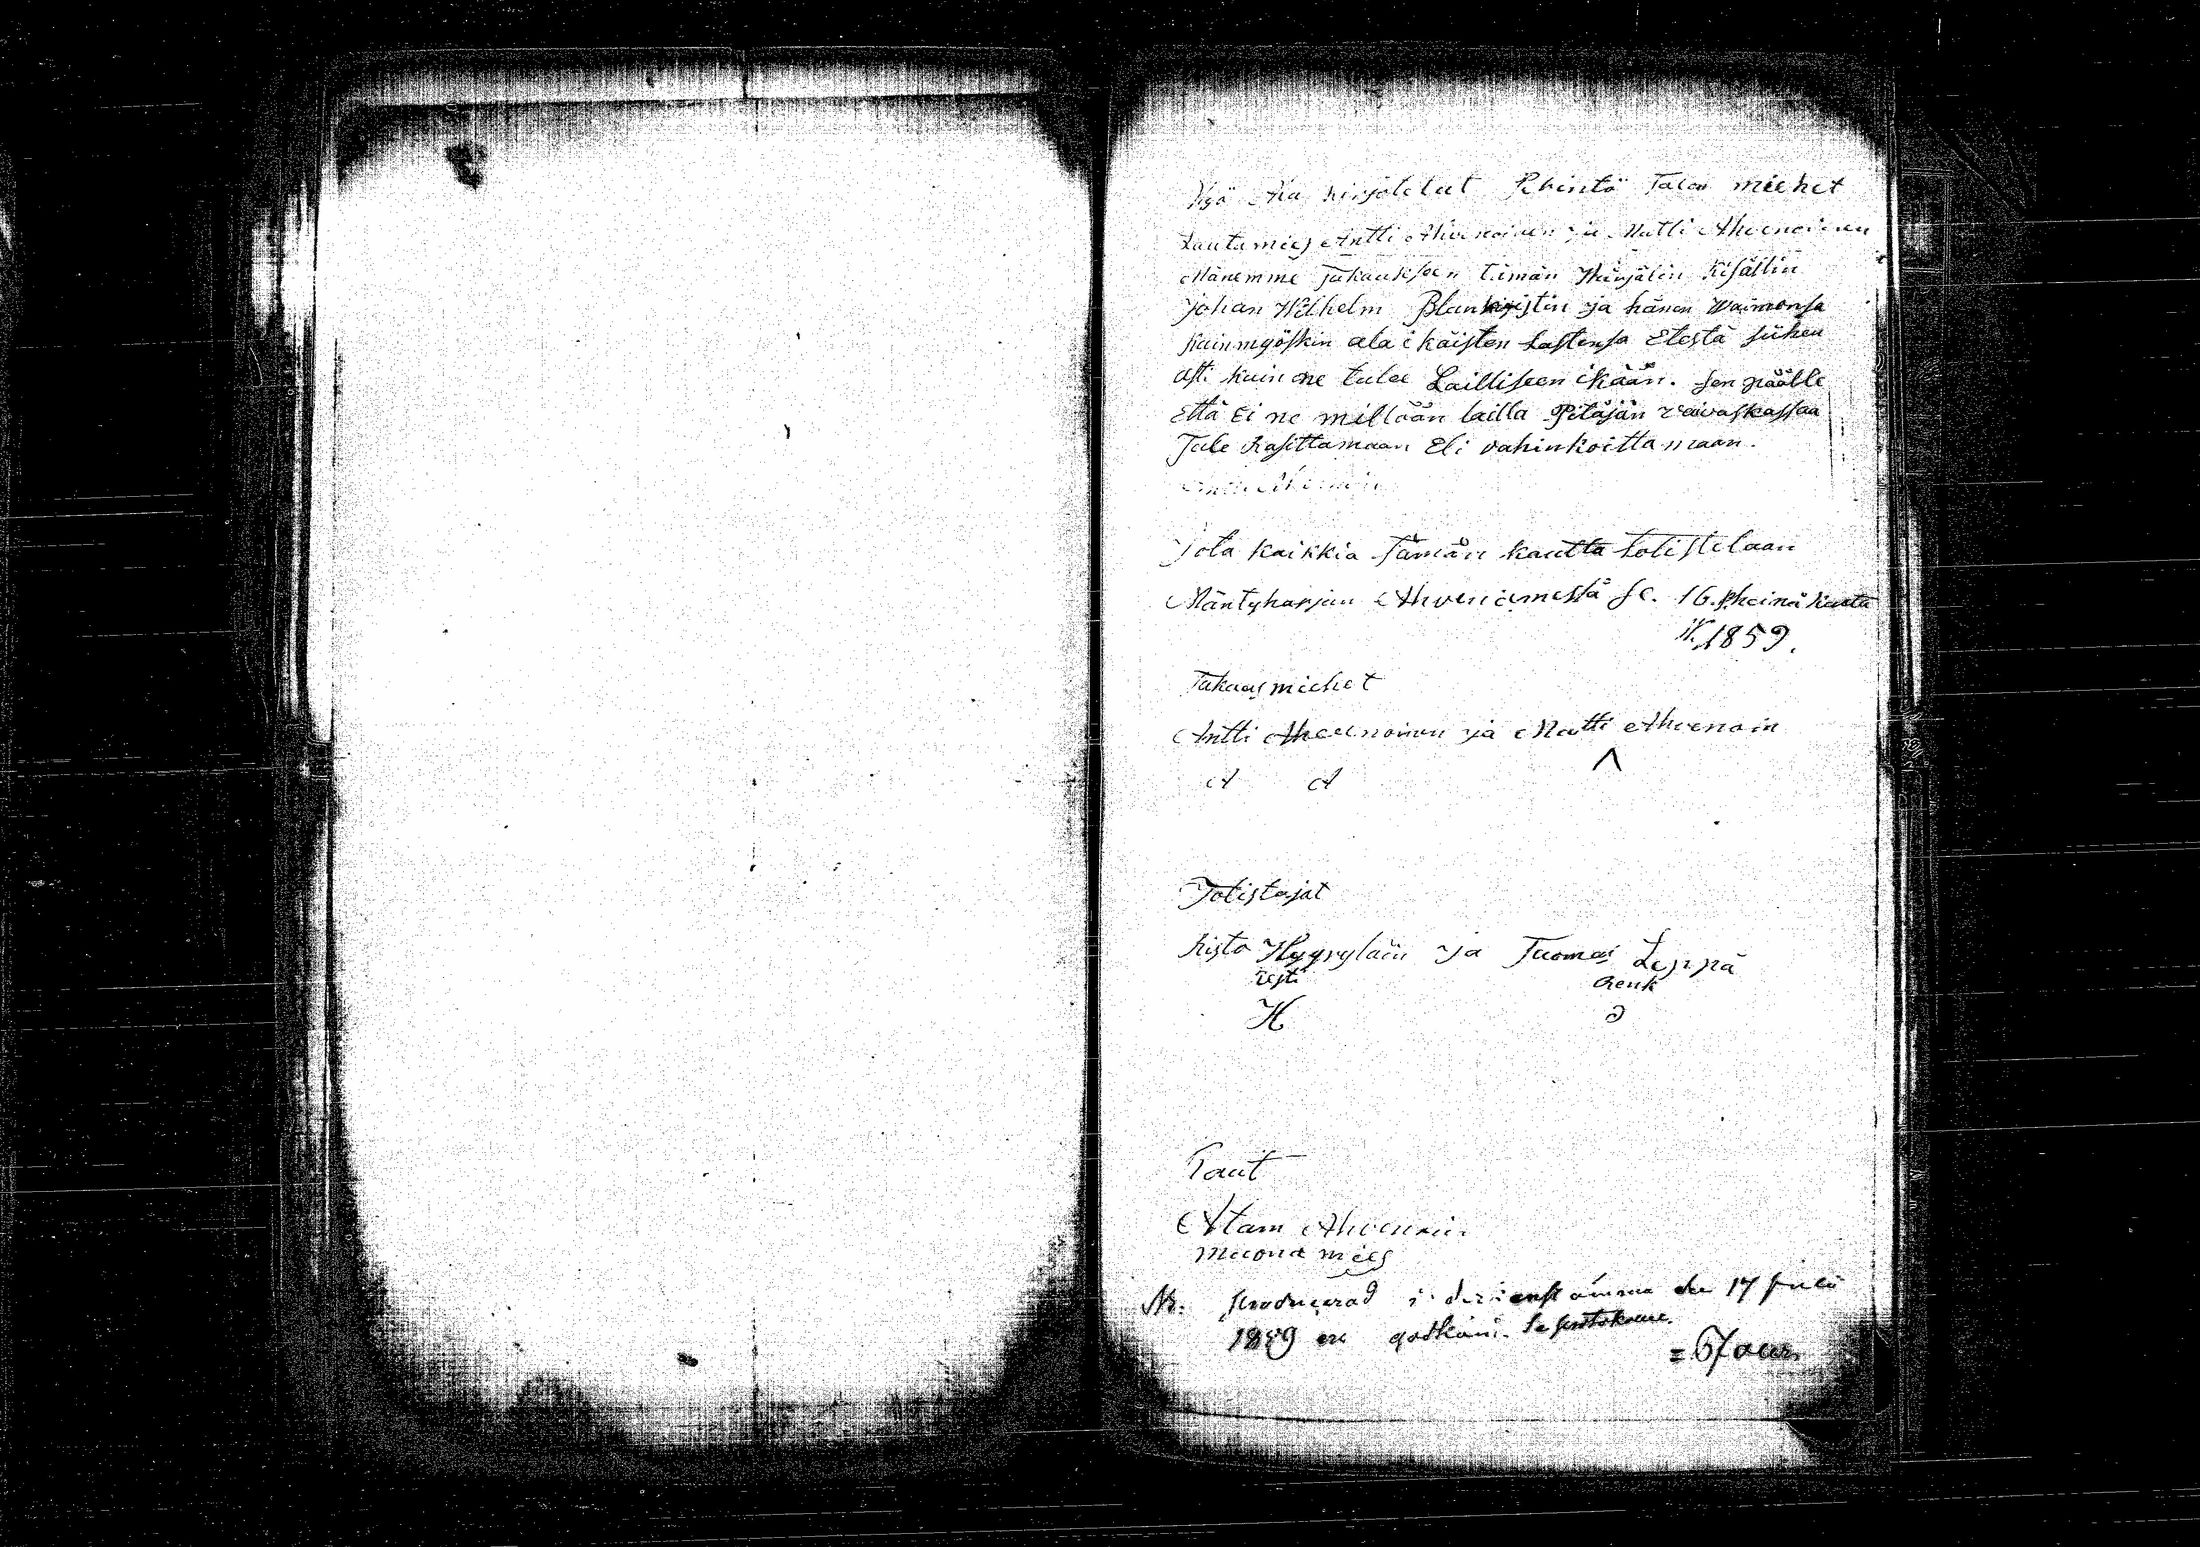 Myö Ala kirjotetut Perintö Talon miehet
Lautamies Antti Ahvenoinen ja Matti Ahvenoinen
Mänemme Takauksen tämän Kisällin
Johan Wilhelm ja hänen Waimonsa
kuin myöskin ala ikäisten Lastensa Etestä siihen
asti kuin ne tulee Lailliseen ikään. sen päälle
Että Ei ne millään lailla Pitäjän vaivaskassaa
Tule Rasittamaan Eli vahinkoittamaan.
Jota kaikkia Tämän kautta totistetaan
Mäntyharjun Ahveniemestä se. 16.p heinä kuuta
W. 1859.
Takausmiehet
Antti Ahvenoinen ja Matti Ahvenoin
A A Λ
Totistajat
Risto Hyyryläin ja Tuomas Leppä
Renk
H
Taut
Atam Ahvenoin
Muonamies
No. Producerad i den 17 Julii
1859 godkänd. Se protokollet.